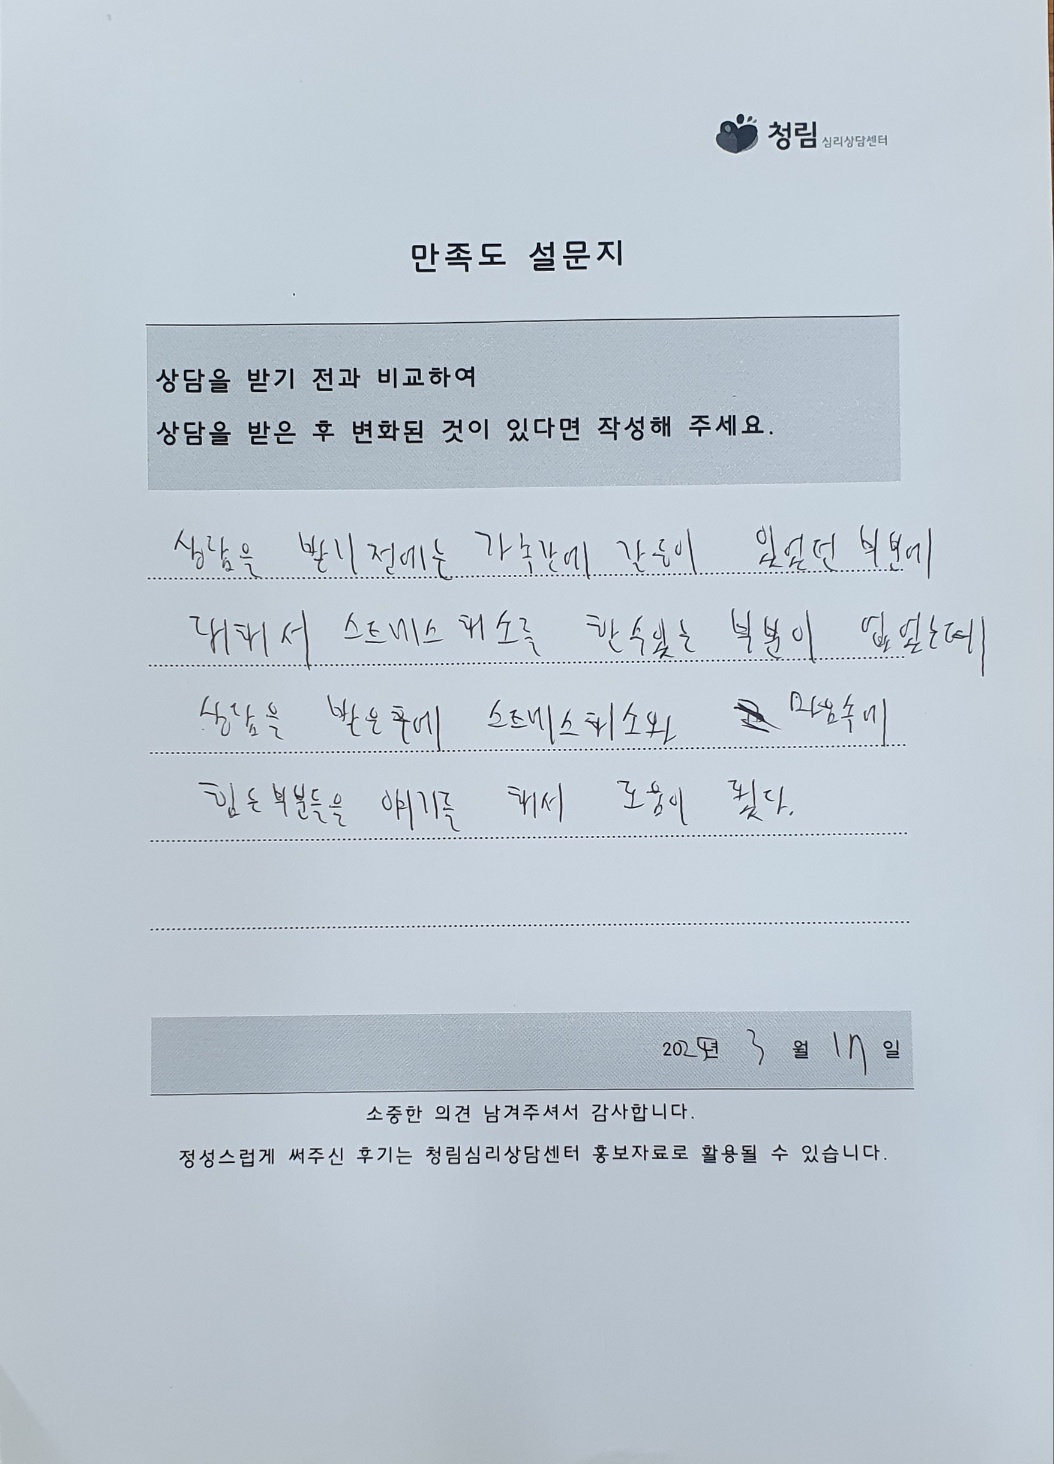 청림 심리상담센터
만족도 설문지
상담을 받기 전과 비교하여
상담을 받은 후 변화된 것이 있다면 작성해 주세요.
상담을 받기전에는 가족간에 갈등이 있었던 부분에
대해서 스트레스 해소를 할수있는 부분이 없었는데
상담을 받은후에 스트레스해소와 마음속에
힘든부분들을 얘기를 해서 도움이 됬다.
2024년 3 월 17 일
소중한 의견 남겨주셔서 감사합니다.
정성스럽게 써주신 후기는 청림심리상담센터 홍보자료로 활용될 수 있습니다.